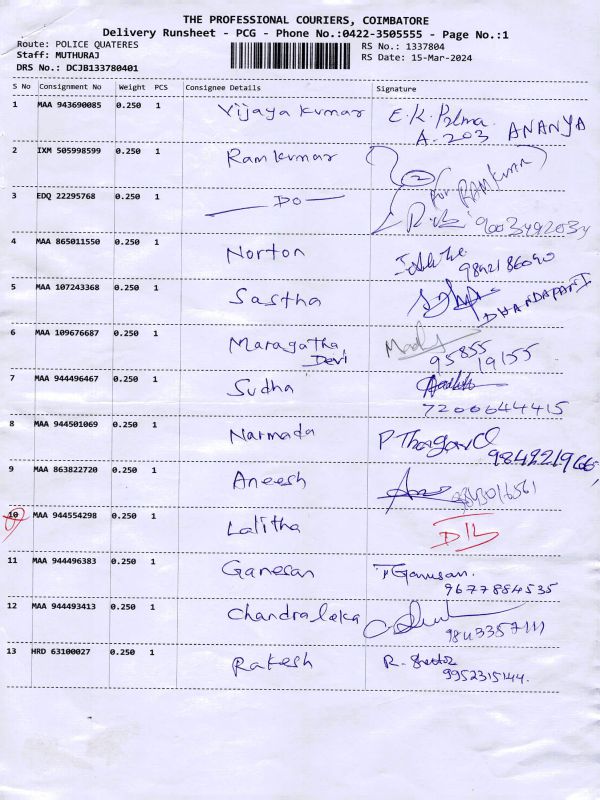 THE PROFESSIONAL COURIERS, COIMBATORE
Delivery Runsheet - PCG - Phone No.:0422-3505555 - Page No.:1
Route: POLICE QUATERES
RS No.: 1337804
Staff: MUTHURAJ
RS Date: 15-Mar-2024
DRS No.: DCJB133780401
S No Consignment No Weight PCS Consignee Details Signature
1 MAA 943690085 0.250 1 Vijaya kumar E.K. Padma
A-203 ANANYA
2 IXM 505998599 0.250 1 Ramkumar 2
for RAMKUMAR
3 EDQ 22295768 0.250 1 — Do —
4 MAA 865011550 0.250 1 Norton
9842186040
5 MAA 107243368 0.250 1 Sastha DHANDAPANI
6 MAA 109676687 0.250 1 Maragatha
Devi 95855
19155
7 MAA 944496467 0.250 1 Sudha
7200644415
8 MAA 944501069 0.250 1 Narmada
9 MAA 863822720 0.250 1 Aneesh
10 MAA 944554298 0.250 1 Lalitha
11 MAA 944496383 0.250 1 Ganesan
9677884535
12 MAA 944493413 0.250 1 Chandraleka
13 HRD 63100027 0.250 1 Rakesh
9952315144.